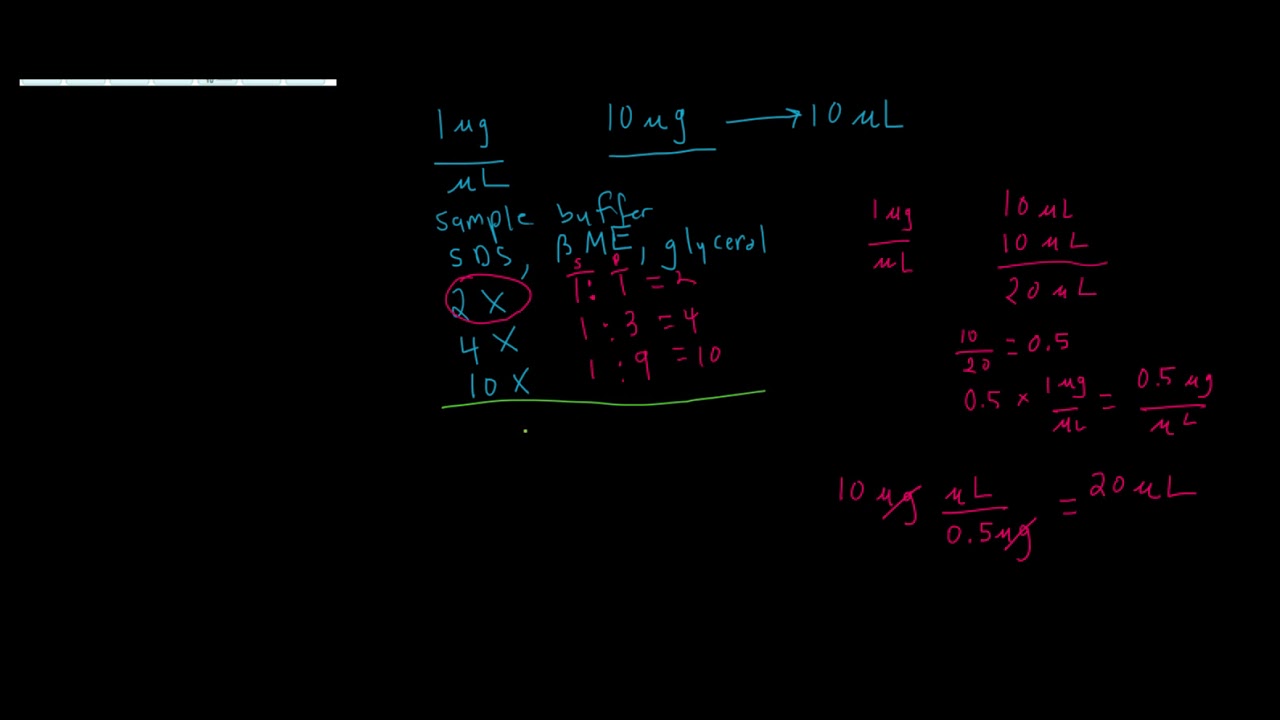 1 ug 10 ug → 10 uL
uL
sample buffer
SDS, βME, glycerol
S P
2 X 1 : 1 = 2
4 X 1 : 3 = 4
10 X 1 : 9 = 10
1 ug
uL
10 uL
10 uL
20 uL
10/20 = 0.5
0.5 × 1 ug/uL = 0.5 ug/uL
10 ug uL/0.5 ug = 20 uL